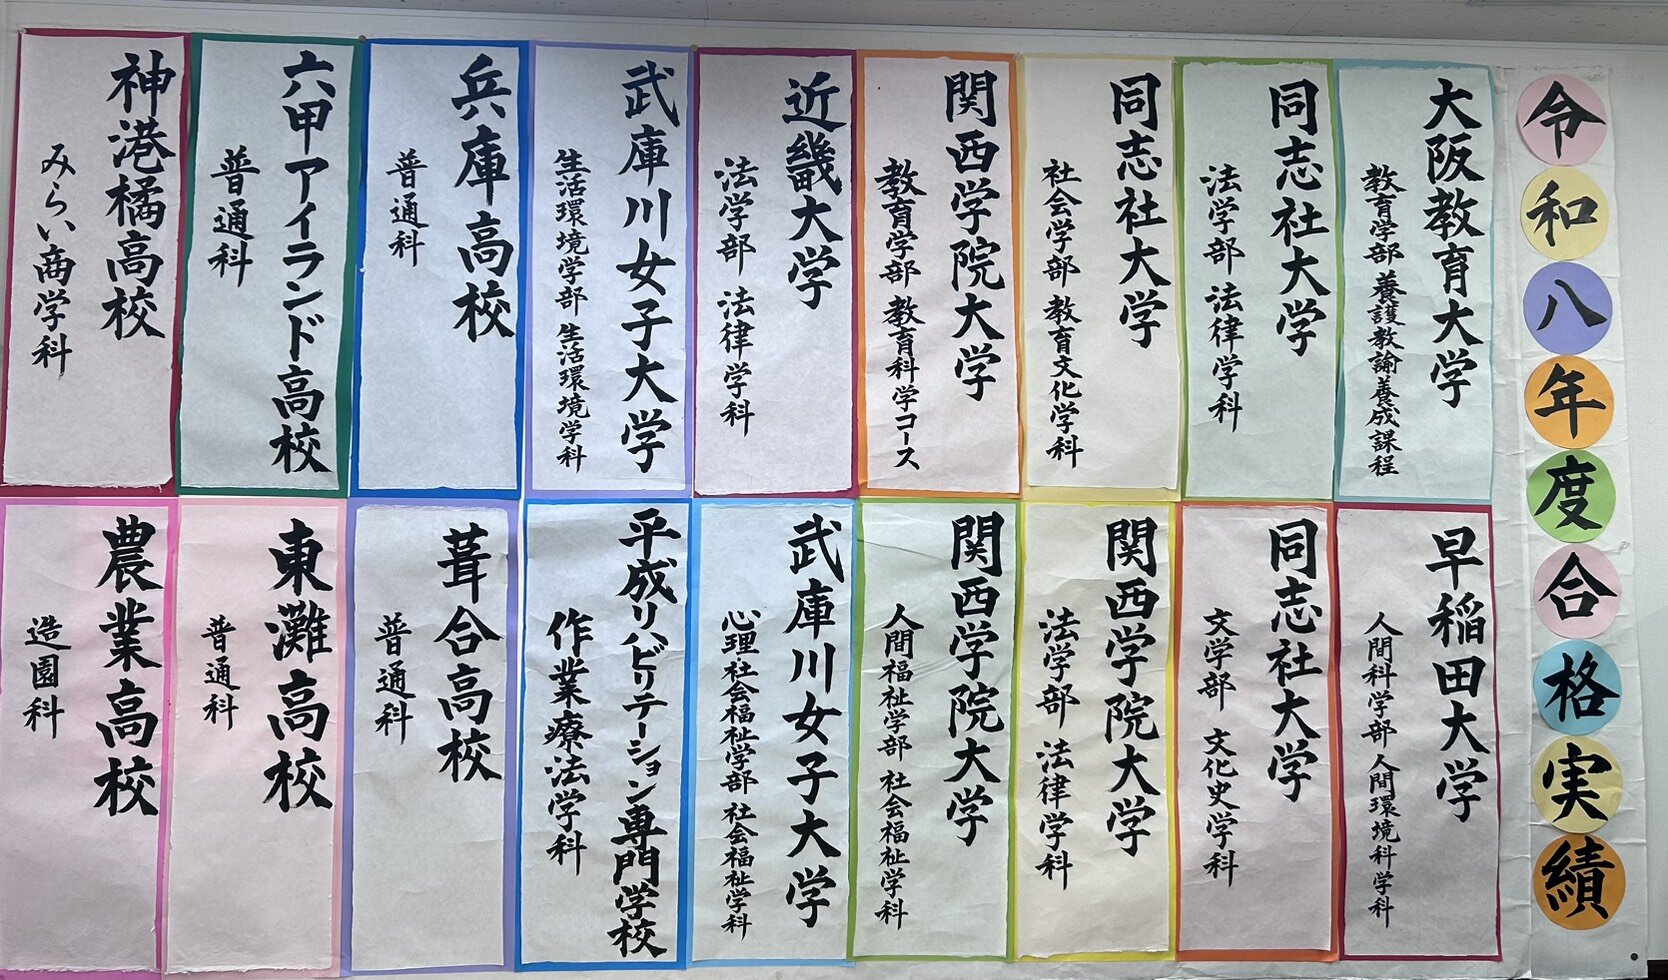 令和八年度合格実績
大阪教育大学
教育学部 養護教諭養成課程
同志社大学
法学部 法律学科
同志社大学
社会学部 教育文化学科
関西学院大学
教育学部 教育科学コース
近畿大学
法学部 法律学科
武庫川女子大学
生活環境学部 生活環境学科
兵庫高校
普通科
六甲アイランド高校
普通科
神港橘高校
みらい商学科
早稲田大学
人間科学部 人間環境科学科
同志社大学
文学部 文化史学科
関西学院大学
法学部 法律学科
関西学院大学
人間福祉学部 社会福祉学科
武庫川女子大学
心理社会福祉学部 社会福祉学科
平成リハビリテーション専門学校
作業療法学科
葺合高校
普通科
東灘高校
普通科
農業高校
造園科